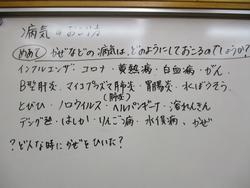 病気のおこり方
めあて かぜなどの病気は、どのようにしておこるのでしょうか?
インフルエンザ・コロナ・黄熱病・白血病・がん
B型肝炎・マイコプラズマ肺炎・胃腸炎・水ぼうそう
(肺炎)
とびひ・ノロウイルス・ヘルパンギーナ・溶れんきん
デング熱・はしか・りんご病・水俣病、かぜ
?どんな時にかぜをひいた?